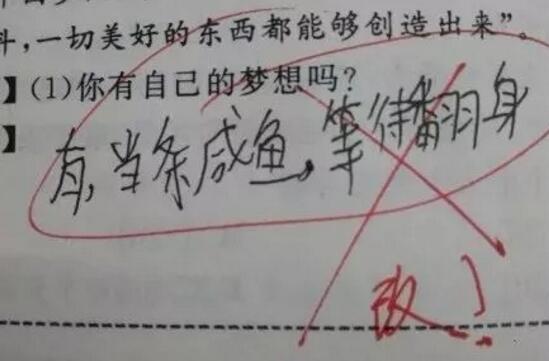 斗，一切美好的东西都能够创造出来”。
】(1)你有自己的梦想吗？
】
有，当条咸鱼，等待翻身
改！